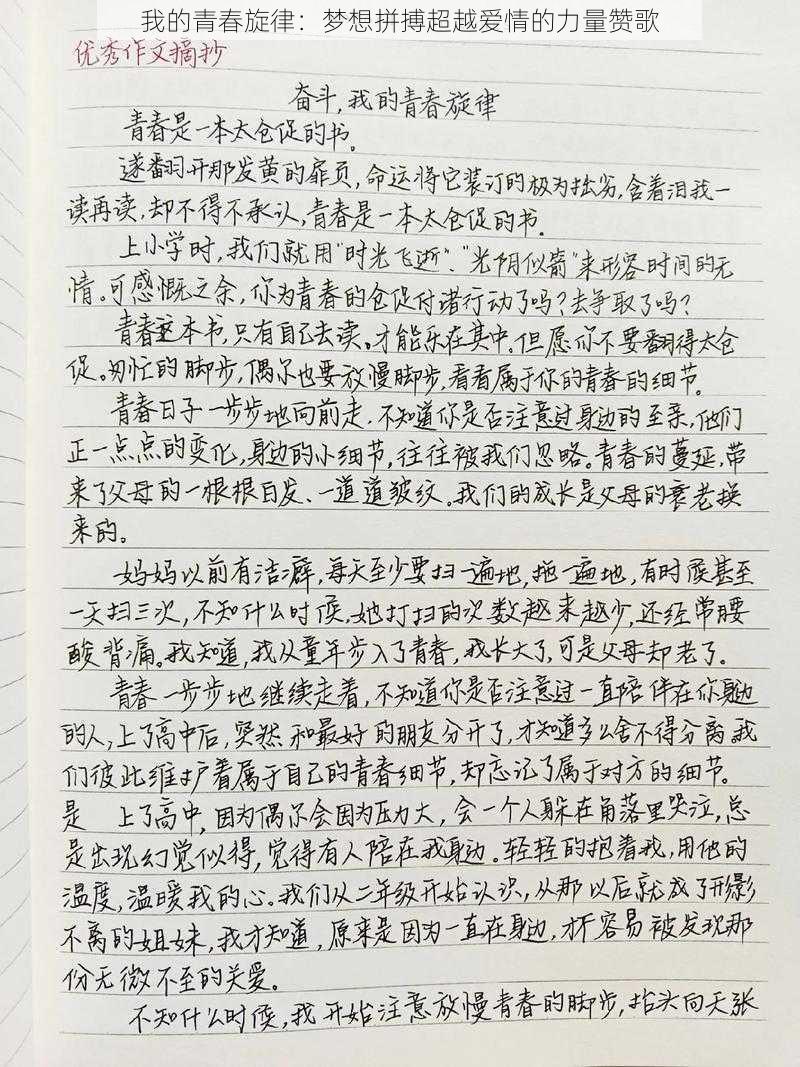 我的青春旋律：梦想拼搏超越爱情的力量赞歌
优秀作文摘抄
奋斗,我的青春旋律
青春是一本太仓促的书。
遂翻开那发黄的扉页,命运将它装订的极为拙劣,含着泪我一
读再读,却不得不承认,青春是一本太仓促的书.
上小学时,我们就用"时光飞逝"、"光阴似箭"来形容时间的无
情。可感慨之余,你为青春的仓促付诸行动了吗?去争取了吗?
青春这本书,只有自己去读。才能乐在其中。但愿你不要翻得太仓
促。匆忙的脚步,偶尔也要放慢脚步,看看属于你的青春的细节。
青春日子一步步地向前走.不知道你是否注意过身边的至亲,他们
正一点点的变化,身边的小细节,往往被我们忽略。青春的蔓延,带
来了父母的一根根白发、一道道皱纹。我们的成长是父母的衰老换
来的。
妈妈以前有洁癖,每天至少要扫一遍地,拖一遍地,有时候甚至
一天扫三次,不知什么时候,她打扫的次数越来越少,还经常腰
酸背痛。我知道,我从童年步入了青春,我长大了,可是父母却老了.
青春一步步地继续走着,不知道你是否注意过一直陪伴在你身边
的人,上了高中后,突然和最好的朋友分开了,才知道多么舍不得分离.我
们彼此维护着属于自己的青春细节,却忘记了属于对方的细节。
是 上了高中,因为偶尔会因为压力大,会一个人躲在角落里哭泣,总
是出现幻觉似得,觉得有人陪在我身边。轻轻的抱着我,用他的
温度,温暖我的心。我们从二年级开始认识,从那以后就成了形影
不离的姐妹,我才知道,原来是因为一直在身边,才不容易被发现那
份无微不至的关爱。
不知什么时候,我开始注意放慢青春的脚步,抬头向天张